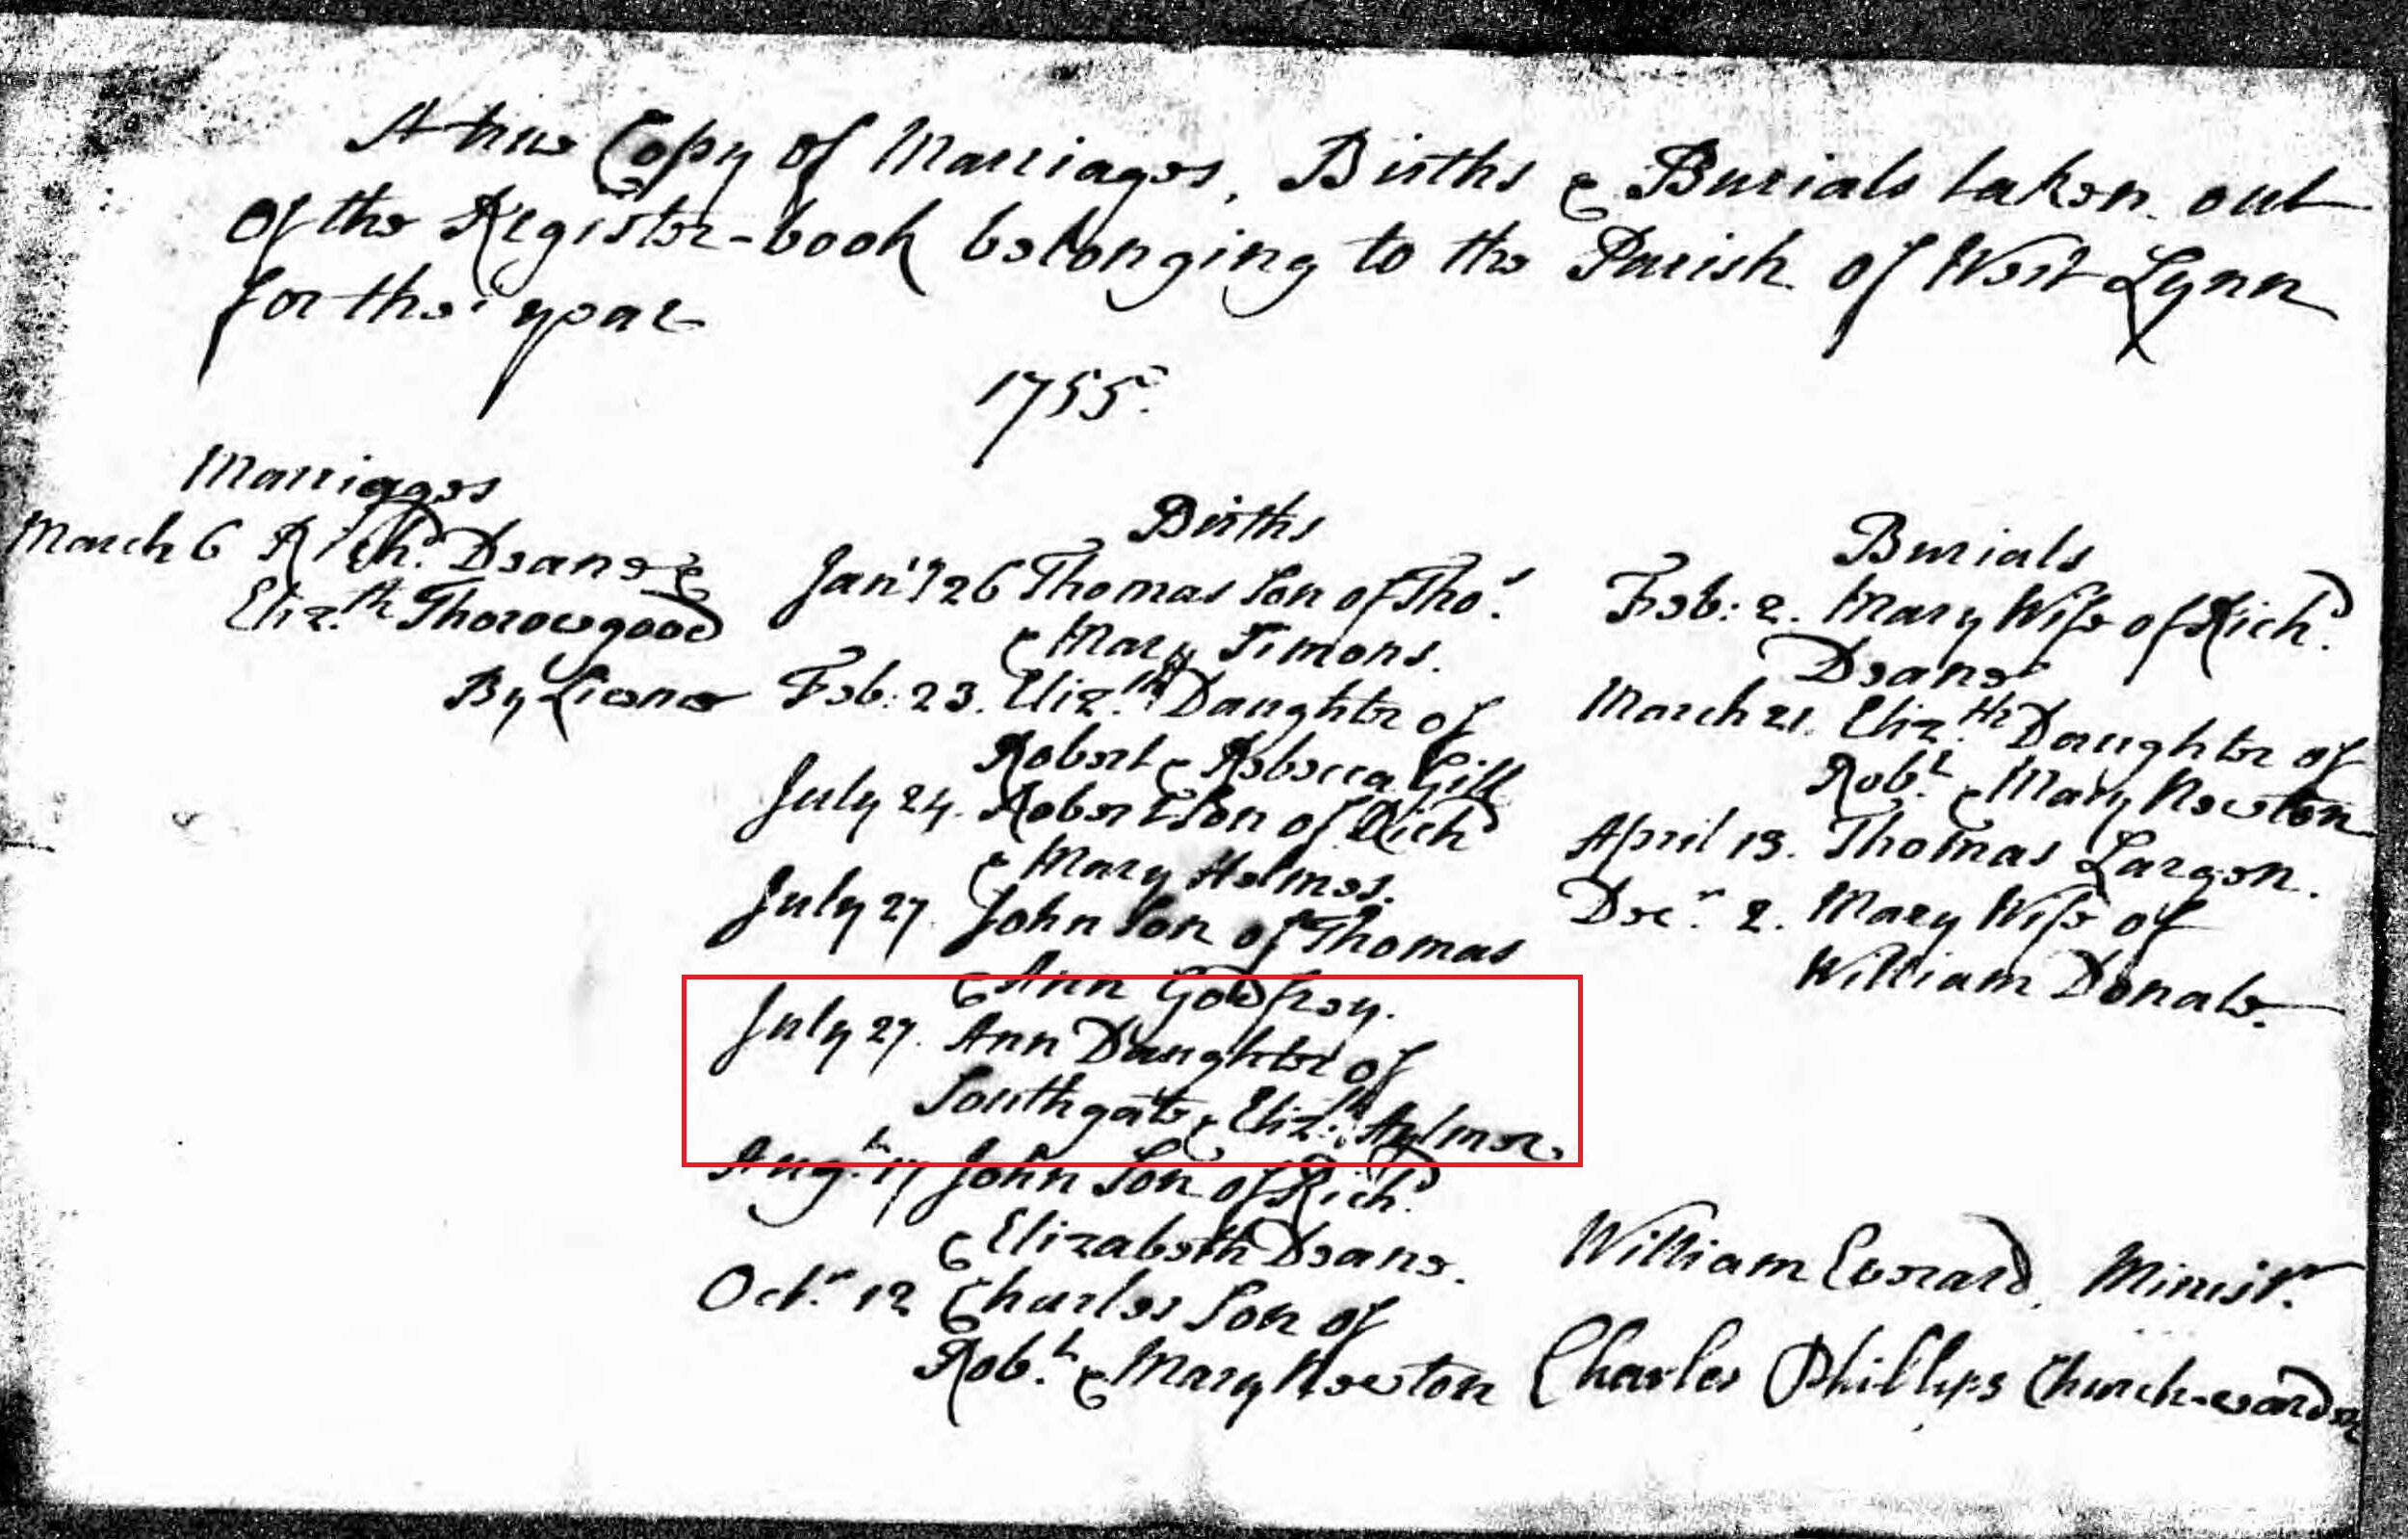 A true Copy of Marriages, Births & Burials taken out
Of the Register-book belonging to the Parish of West Lynn
for the year
1755.
Marriages
March 6 Richd. Deane &
Eliz.th Thorowgood
By Licence
Births
Jan.ry 26 Thomas Son of Tho.s
& Mary Timons.
Feb: 23. Eliz.th Daughter of
Robert & Rebecca Gill
July 24. Robert Son of Richd
& Mary Holmes.
July 27. John Son of Thomas
& Ann Godfrey.
July 27. Ann Daughter of
Southgate & Eliz.th Aylmer.
Aug.t 17 John Son of Richd.
& Elizabeth Deane.
Oct.r 12 Charles Son of
Rob.t & Mary Newton
Burials
Feb: 2. Mary Wife of Richd.
Deane
March 21. Eliz.th Daughter of
Rob.t & Mary Newton
April 13. Thomas Largen.
Dec.r 2. Mary Wife of
William Donale.
William Everard, Minist.r
Charles Phillips Church-warden